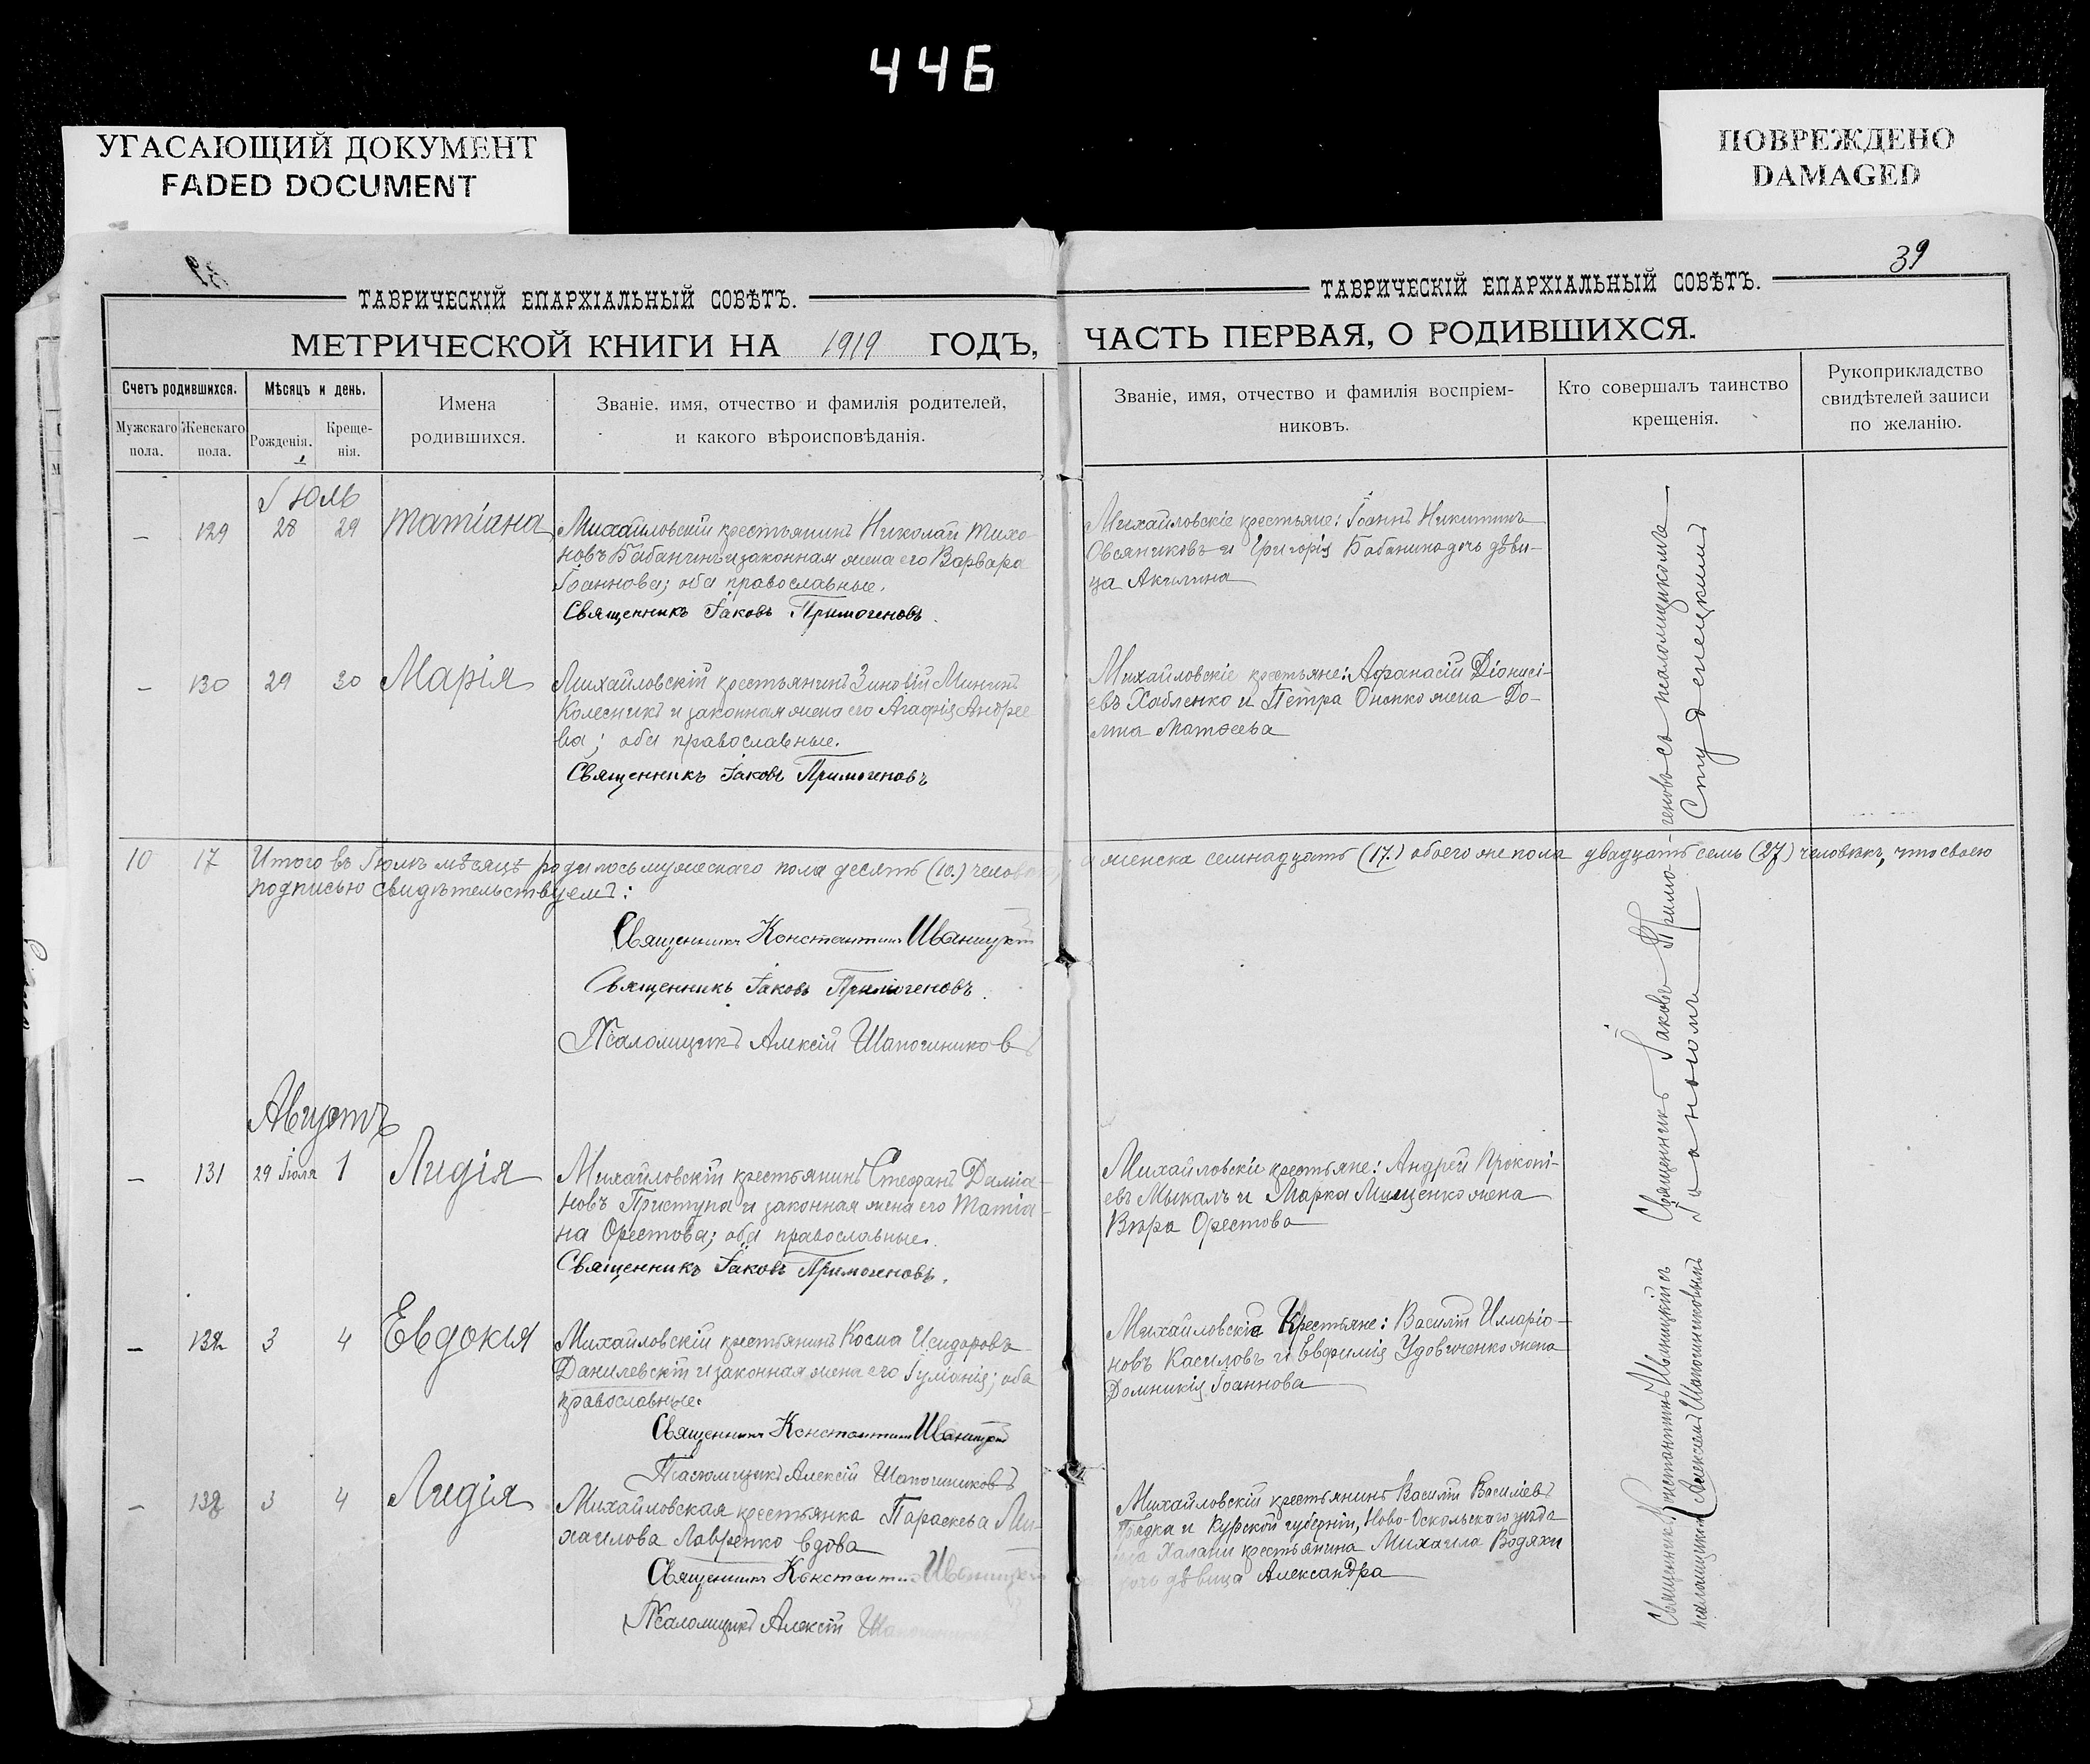 446
УГАСАЮЩИЙ ДОКУМЕНТ
FADED DOCUMENT
ПОВРЕЖДЕНО
DAMAGED
39
ТАВРИЧЕСКІЙ ЕПАРХІАЛЬНЫЙ СОВѢТЪ.
МЕТРИЧЕСКОЙ КНИГИ НА 1919 ГОДЪ,
Счетъ родившихся.
Мужскаго пола.
Женскаго пола.
Мѣсяцъ и день.
Рожденія.
Креще-
нія.
Имена
родившихся.
Званіе, имя, отчество и фамилія родителей,
и какого вѣроисповѣданія.
Іюль
— 129 28 29 Татіана
Михайловскій крестьянинъ Николай Тихо-
новъ Бабанинъ и законная жена его Варвара
Іоаннова; оба православные.
Священникъ Іаковъ Примогеновъ.
— 130 29 30 Марія
Михайловскій крестьянинъ Зиновій Мининъ
Колесникъ и законная жена его Агафія Андрее-
ва; оба православные.
Священникъ Іаковъ Примогеновъ
10 17 Итого въ Іюлѣ мѣсяцѣ родилось мужескаго пола десять (10.) человѣкъ
подписью свидѣтельствуемъ:
Священникъ Константинъ Иваницкій
Священникъ Іаковъ Примогеновъ.
Псаломщикъ Алексій Шапошниковъ
Августъ
— 131 29 Іюля 1 Лидія
Михайловскій крестьянинъ Стефанъ Даміа-
новъ Приступа и законная жена его Татіа-
на Орестова; оба православные.
Священникъ Іаковъ Примогеновъ.
— 132 3 4 Евдокія
Михайловскій крестьянинъ Косма Исидоровъ
Данилевскій и законная жена его Іуліанія; оба
православные.
Священникъ Константинъ Иваницкій
Псаломщикъ Алексій Шапошниковъ
— 133 3 4 Лидія
Михайловская крестьянка Параскева Ми-
хаилова Лавренко вдова
Священникъ Константинъ Иваницкій
Псаломщикъ Алексій Шапошниковъ
ТАВРИЧЕСКІЙ ЕПАРХІАЛЬНЫЙ СОВѢТЪ.
ЧАСТЬ ПЕРВАЯ, О РОДИВШИХСЯ.
Званіе, имя, отчество и фамилія воспріем-
никовъ.
Кто совершалъ таинство
крещенія.
Рукоприкладство
свидѣтелей записи
по желанію.
Михайловскіе крестьяне: Іоаннъ Никитинъ
Овсяниковъ и Григорія Бабанина дочь дѣви-
ца Акилина
Михайловскіе крестьяне: Афанасій Діонисі-
евъ Хабленко и Петра Онопко жена До-
мна Матѳеева
и женска семнадцать (17.) обоего же пола двадцать семь (27) человѣкъ, что своею
Михайловскіе крестьяне: Андрей Прокопі-
евъ Мыкалъ и Марка Мищенко жена
Вѣра Орестова
Михайловскіе Крестьяне: Василій Илларіо-
новъ Касиловъ и Евфимія Удовиченко жена
Домникія Іоаннова
Михайловскій крестьянинъ Василій Васильевъ
и Курской губерніи, Ново-Оскольскаго уѣзда
Халани крестьянина Михаила
дочь дѣвица Александра
Священникъ Іаковъ Примо-геновъ съ псаломщикомъ
Студенецкимъ
Священникъ Константинъ Иваницкій съ
псаломщикомъ Алексіемъ Шапошниковымъ